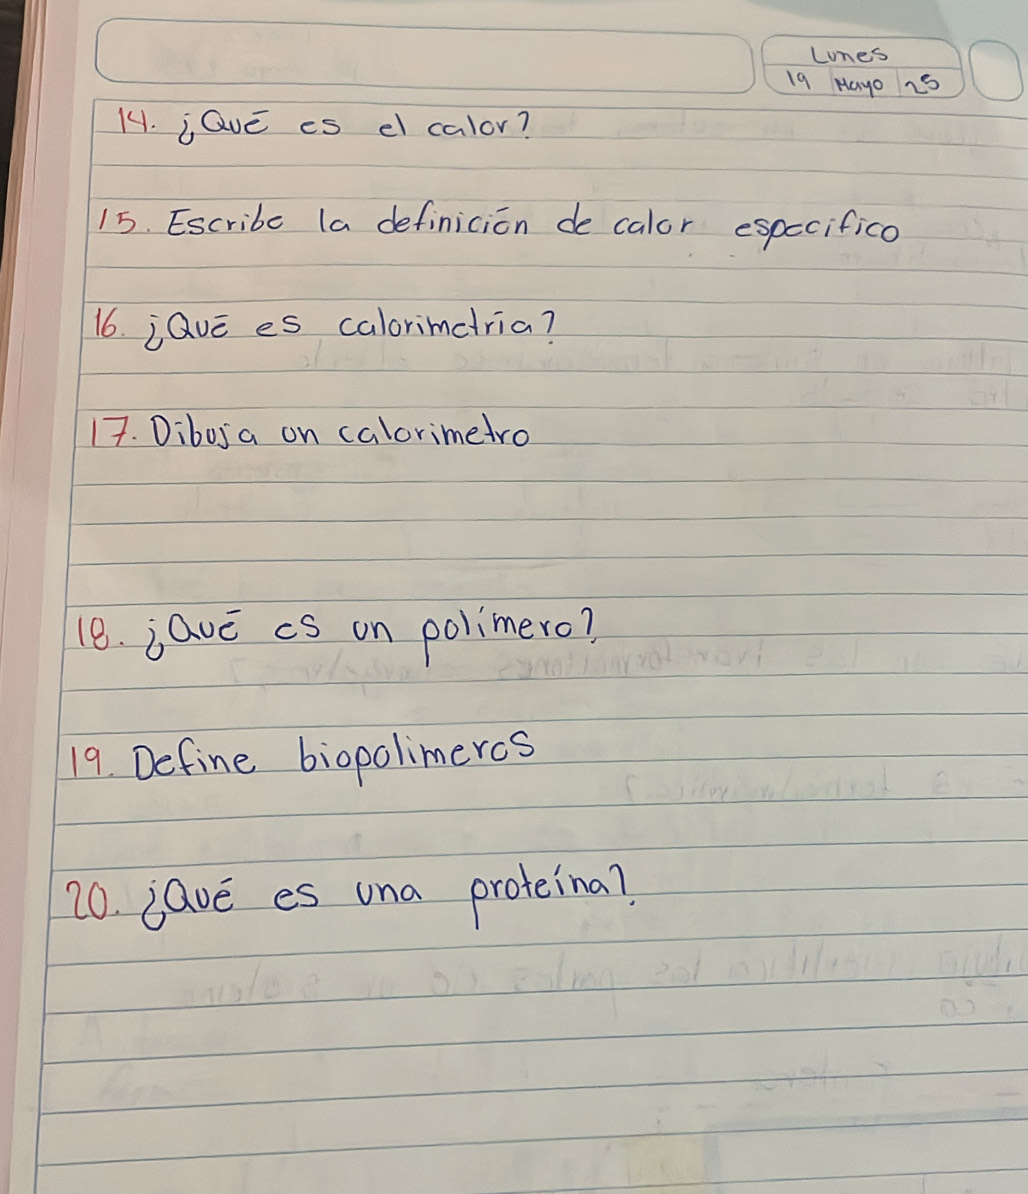 Lunes
19 Mayo 25
14. ¿Qué es el calor?
15. Escribe la definición de calor especifico
16. ¿Qué es calorimetria?
17. Dibuja un calorimetro
18. ¿Qué es un polímero?
19. Define biopolimeros
20. ¿Qué es una proteína?